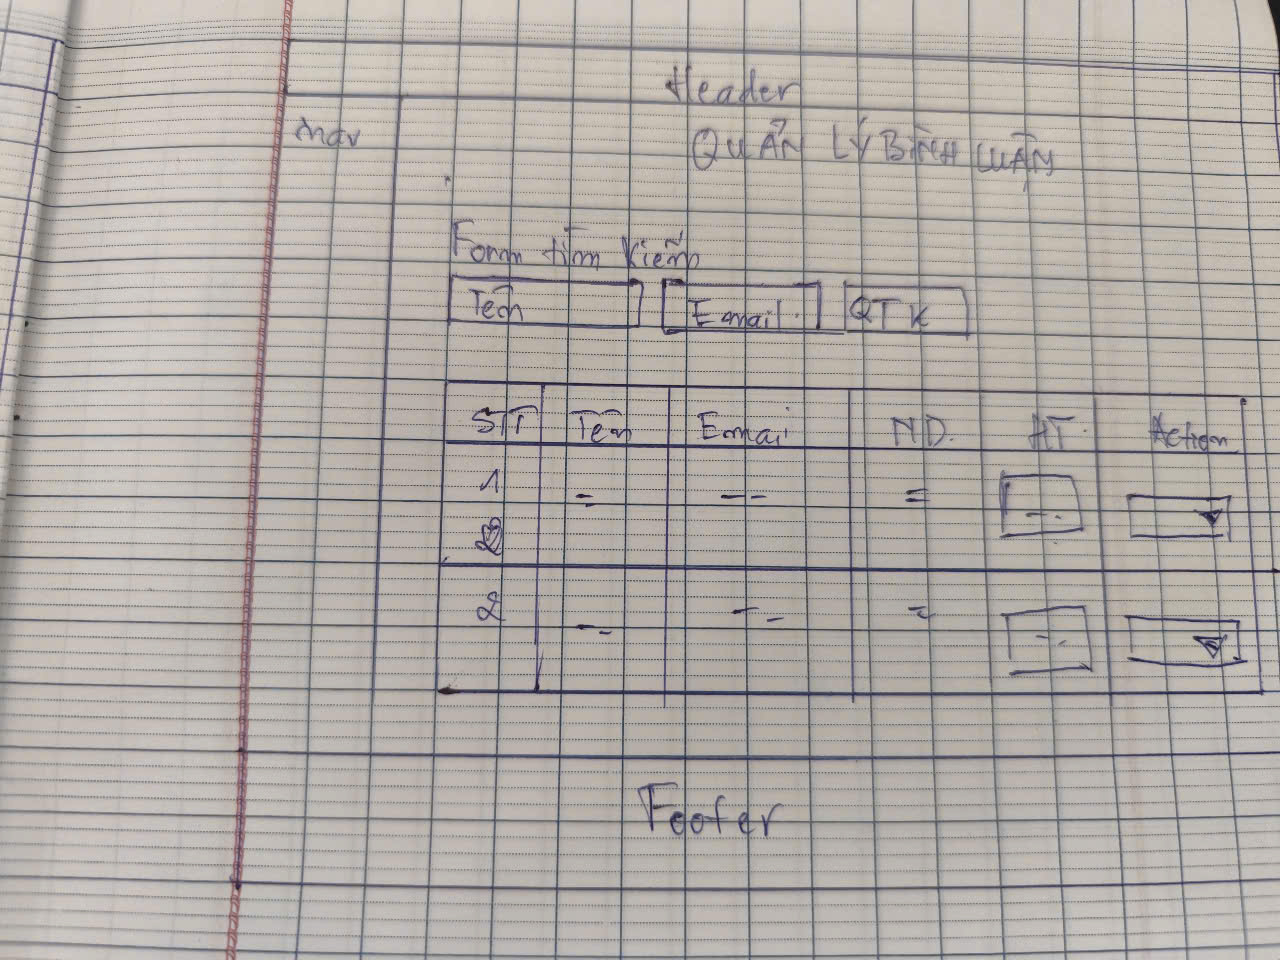 Header
nav
QUẢN LÝ BÌNH LUẬN
Form tìm kiếm
Tên Email QTK
STT Tên Emai ND. HT. Action
1 - -- =
2
2 -- -- =
Footer